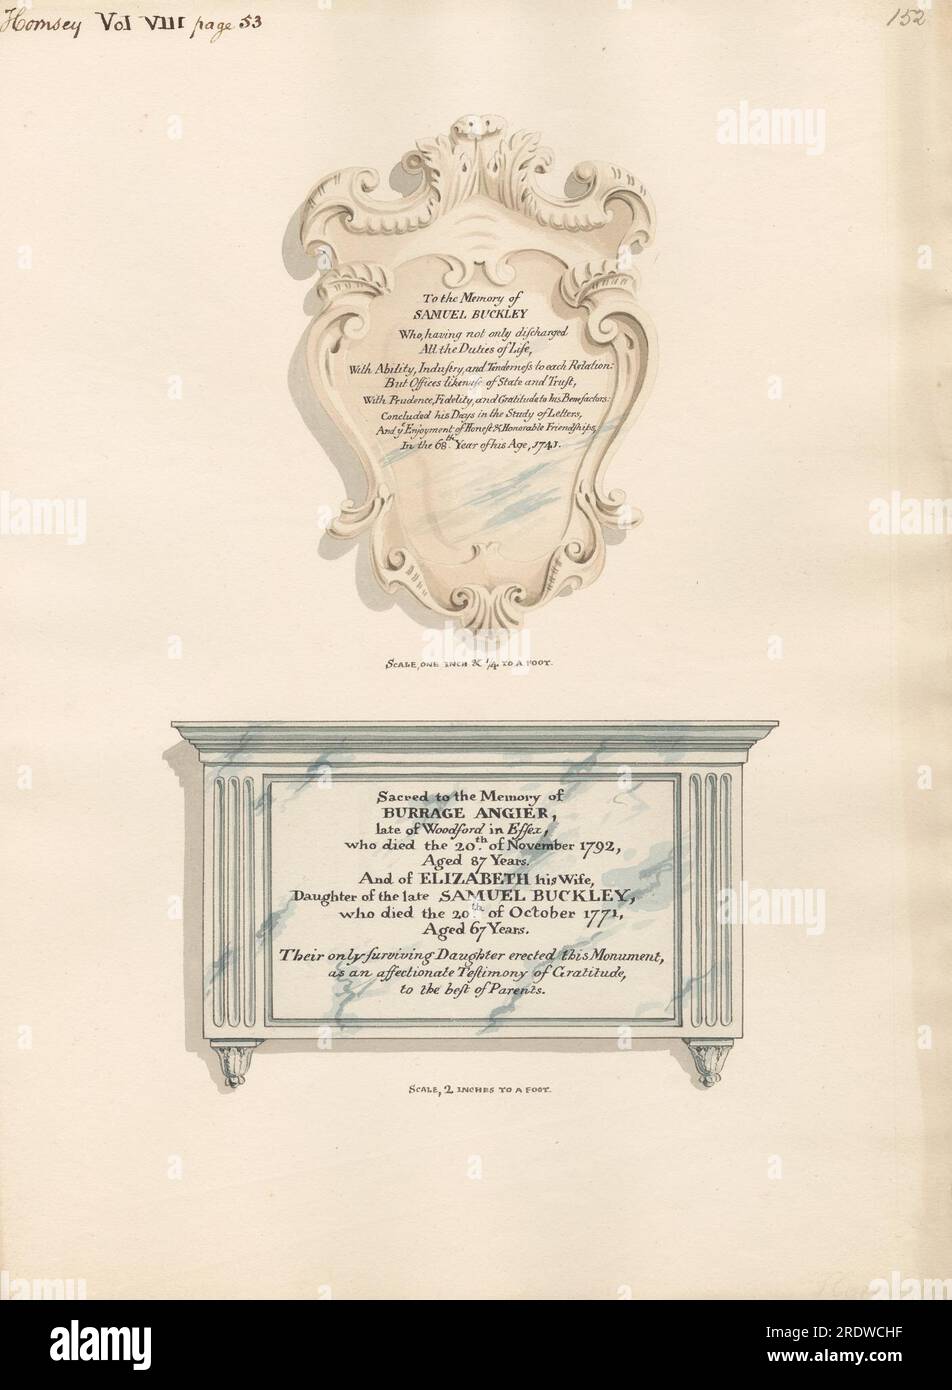 Hornsey Vol VIII page 53
152
To the Memory of
SAMUEL BUCKLEY
Who, having not only diſcharged
All the Duties of Life,
With Ability, Induſtry, and Tenderneſs to each Relation:
But Offices likewiſe of State and Truſt,
With Prudence, Fidelity, and Gratitude to his Benefactors:
Concluded his Days in the Study of Letters,
And yᵉ Enjoyment of Honeſt & Honorable Friendſhips,
In the 68.th Year of his Age, 1741.
SCALE, ONE INCH & 1/4 TO A FOOT.
Sacred to the Memory of
BURRAGE ANGIER,
late of Woodford in Eſſex,
who died the 20.th of November 1792,
Aged 87 Years.
And of ELIZABETH his Wife,
Daughter of the late SAMUEL BUCKLEY,
who died the 20th of October 1771,
Aged 67 Years.
Their only ſurviving Daughter erected this Monument,
as an affectionate Teſtimony of Gratitude,
to the beſt of Parents.
SCALE, 2 INCHES TO A FOOT.
alamy
Image ID: 2RDWCHF
www.alamy.com